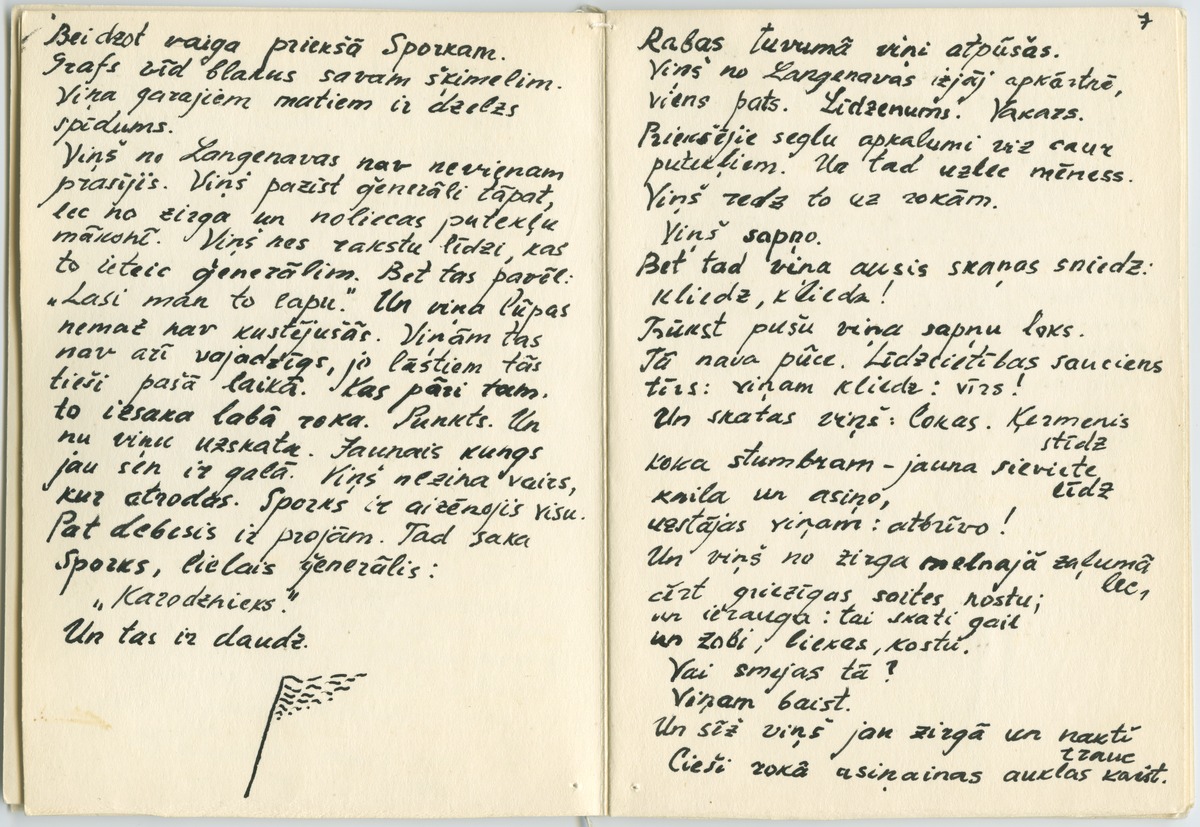 Beidzot vaiga priekšā Sporkam.
Grafs vīd blakus savam šķimelim.
Viņa garajiem matiem ir dzelzs
spīdums.
Viņš no Langenavas nav nevienam
prasījis. Viņš pazīst ģenerāli tāpat,
lec no zirga un noliecas putekļu
mākonī. Viņš nes rakstu līdzi, kas
to ieteic ģenerālim. Bet tas pavēl:
„Lasi man to lapu." Un viņa lūpas
nemaz nav kustējušās. Viņām tas
nav arī vajadzīgs, jo lāstiem tās
tieši pašā laikā. Kas pāri tam,
to izsaka labā roka. Punkts. Un
nu viņu uzskata. Jaunais kungs
jau sen ir galā. Viņš nezina vairs,
kur atrodas. Sporks ir aizēnojis visu.
Pat debesis ir projām. Tad saka
Sporks, lielais ģenerālis:
„Karodznieks."
Un tas ir daudz.
7
Rabas tuvumā viņi atpūšas.
Viņš no Langenavas izjāj apkārtnē,
viens pats. Līdzenums. Vakars.
Priekšējie seglu apkalumi viz caur
putekļiem. Un tad uzlec mēness.
Viņš redz to uz rokām.
Viņš sapņo.
Bet tad viņa ausis skaņas sniedz:
Kliedz, kliedz!
Trūkst pušu viņa sapņu loks.
Tā nava pūce. Līdzcietības sauciens
tīrs: viņam kliedz: vīrs!
Un skatas viņš: lokas. Ķermenis
stīdz
koka stumbram – jauna sieviete
līdz
kaila un asiņo,
uzstājas viņam: atbrīvo!
Un viņš no zirga melnajā zaļumā
lec,
cērt griezīgas saites nostu;
un ierauga: tai skati gail
un zobi, liekas, kostu.
Vai smejas tā?
Viņam baist.
Un sīž viņš jau zirgā un naktī
trauc
Cieši rokā asiņainas auklas kaist.